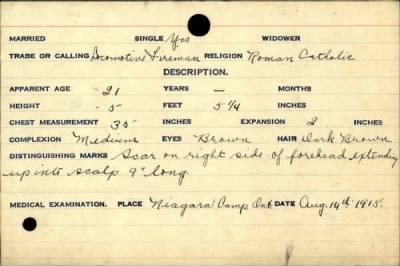 MARRIED SINGLE Yes WIDOWER
TRADE OR CALLING Locomotive Fireman RELIGION Roman Catholic
DESCRIPTION.
APPARENT AGE 21 YEARS — MONTHS
HEIGHT 5 FEET 5 1/4 INCHES
CHEST MEASUREMENT 35 INCHES EXPANSION 2 INCHES
COMPLEXION Medium EYES Brown HAIR Dark Brown
DISTINGUISHING MARKS Scar on right side of forehead extending
up into scalp 9" long.
MEDICAL EXAMINATION. PLACE Niagara Camp Ont DATE Aug. 14th 1915.